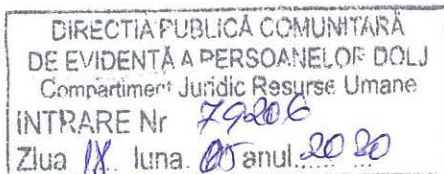 DIRECTIA PUBLICĂ COMUNITARĂ
DE EVIDENȚĂ A PERSOANELOR DOLJ
Compartiment Juridic Resurse Umane
INTRARE Nr 79206
Ziua 18 luna 05 anul 2020